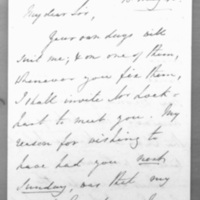 My dear Sir,
Your own days will
suit me; & on one of them,
whenever you fix them,
I shall invite
to meet you. My
reason for wishing to
have had you next
Sunday, was that my